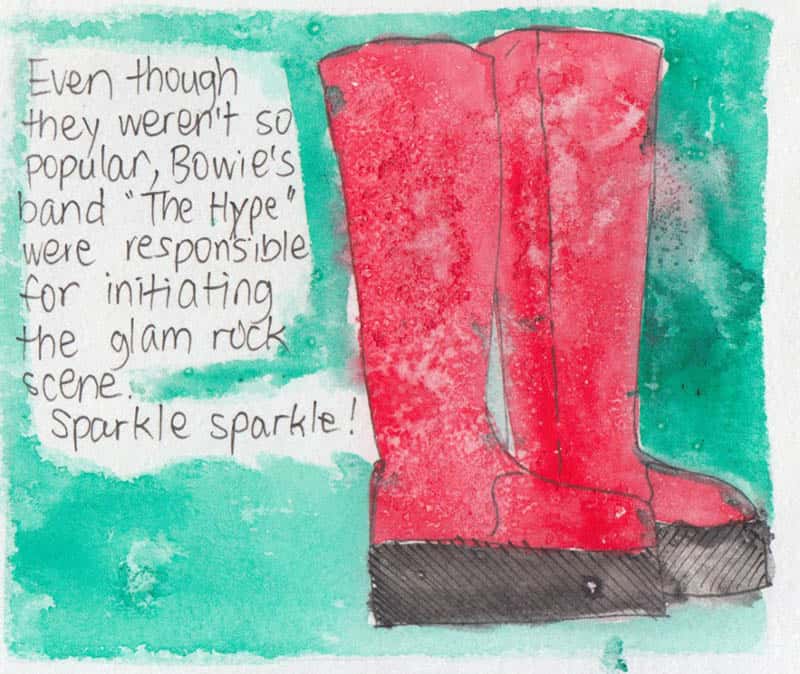 Even though
they weren't so
popular, Bowie's
band "The Hype"
were responsible
for initiating
the glam rock
scene.
Sparkle sparkle!